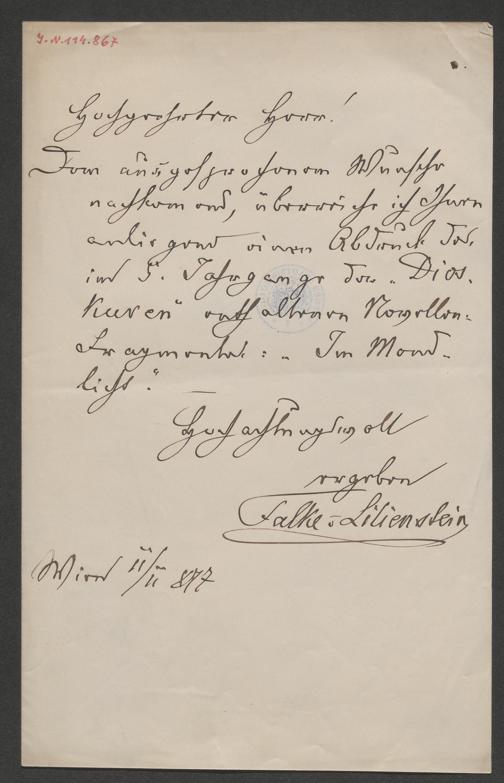 J.N. 114.867
Hochgeehrter Herr!
Dem ausgesprochenem Wunsche
nachkomend, überreiche ich Ihnen
anliegend einen Abdruck des
im 5. Jahrgange der „Dios-
kuren" enthaltenen Novellen-
Fragmentes: „Im Mond-
licht". —
Hochachtungsvoll
ergeben
Falke v Lilienstein
Wien 11/11 877